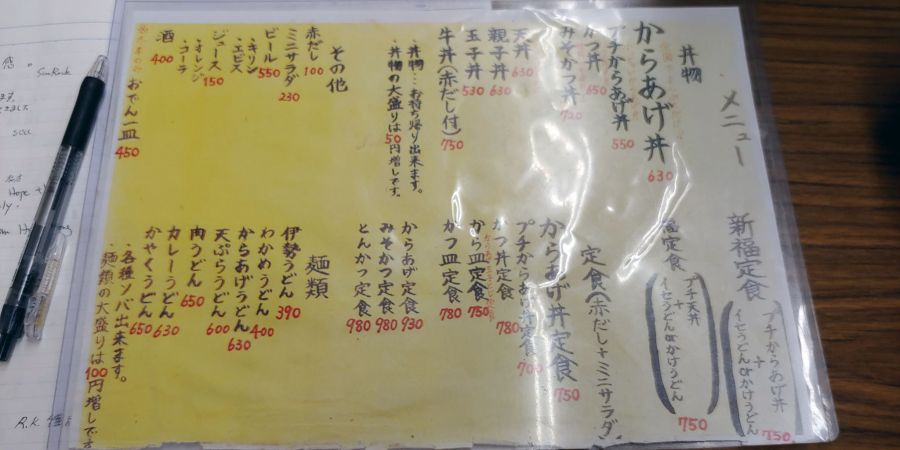 メニュー
丼物
からあげ丼 630
プチからあげ丼 550
かつ丼 650
みそかつ丼 720
天丼 630
親子丼 630
玉子丼 530
牛丼(赤だし付) 750
・丼物…お持ち帰り出来ます。
・丼物の大盛りは50円増しです。
その他
赤だし 100
ミニサラダ 230
ビール 550
・キリン
・エビス
ジュース 150
・オレンジ
・コーラ
酒 400
おでん一皿 450
新福定食
プチからあげ丼
+
イセうどんorかけうどん
750
定食
プチ天丼
+
イセうどんorかけうどん
750
定食(赤だし+ミニサラダ)
からあげ丼定食 750
プチからあげ丼定食 700
かつ丼定食 780
から皿定食 750
かつ皿定食 780
からあげ定食 930
みそかつ定食 980
とんかつ定食 980
麺類
伊勢うどん 390
わかめうどん 400
からあげうどん 630
天ぷらうどん 600
肉うどん 650
カレーうどん 630
かやくうどん 650
・各種ソバ出来ます。
・麺類の大盛りは100円増しです
R.K